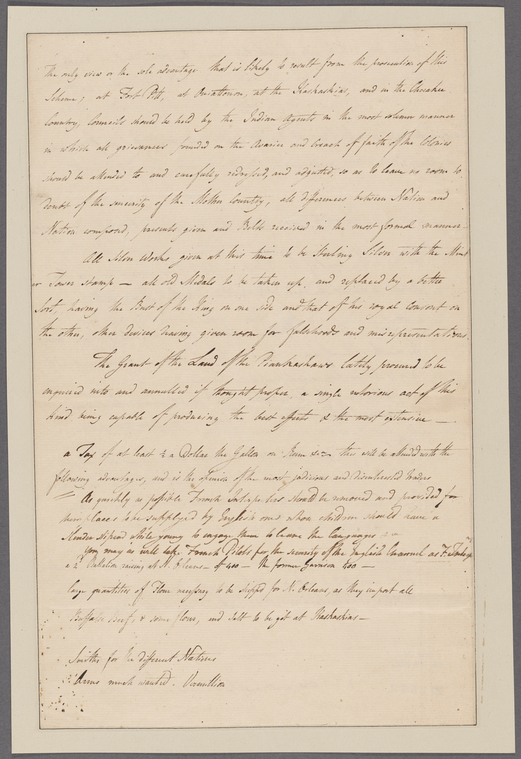 the only view or the sole advantage that is likely to result from the prosecution of this
Scheme; at Fort Pitt, at Ouiattonon, at the Kaskaskias, and in the Cherokee
Country, Councils should be held by the Indian Agents in the most solemn manner
in which all grievances founded on the Avarice and breach of faith of the Colonies
should be attended to and carefully redressed, and adjusted, so as to leave no room to
doubt of the sincerity of the Mother Country, all differences between Nation and
Nation composed, presents given and Belts received in the most formal manner.
All Silver Works given at this time to be Sterling Silver with the Mint
or Tower Stamp — all old Medals to be taken up, and replaced by a better
Sort, having the Bust of the King on one side and that of his royal Consort on
the other, other devices having given room for falsehoods and misrepresentations.
The Grant of the Land of the Piankashaws lately procured to be
enquired into and annulled if thought proper, a single notorious act of this
kind being capable of producing the best effects & the most extensive —
a Tax of at least ½ a Dollar the Gallon on Rum &ca this will be attended with the
following advantages, and is the opinion of the most judicious and disinterested traders
As quickly as possible French Interpreters should be removed and provided for
their places to be supplyed by English ones whose children should have a
Slender stipend while young to engage them to learn the languages
you may as well take French Pilots for the security of the English Channel as F.
a 2d Battalion raising at N. Orleans of 400 — the former Garrison 400 —
large quantities of flour to be shipped for N. Orleans, as they import all
Buffaloe beef & some flour, and Salt to be got at Kaskaskias —
Smiths for the different Nations
Arms much wanted. Vermillion